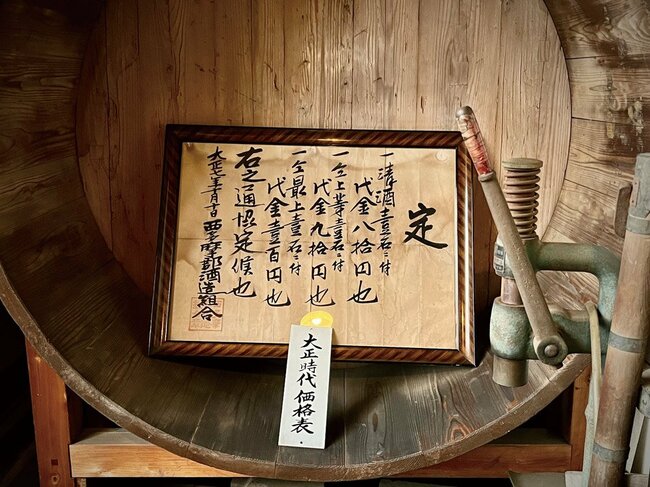 定
一清酒壹石ニ付
代金八拾円也
一仝上等壹石ニ付
代金九拾円也
一仝最上壹石ニ付
代金壹百円也
右之通協定候也
西多摩郡酒造組合
大正時代 価格表